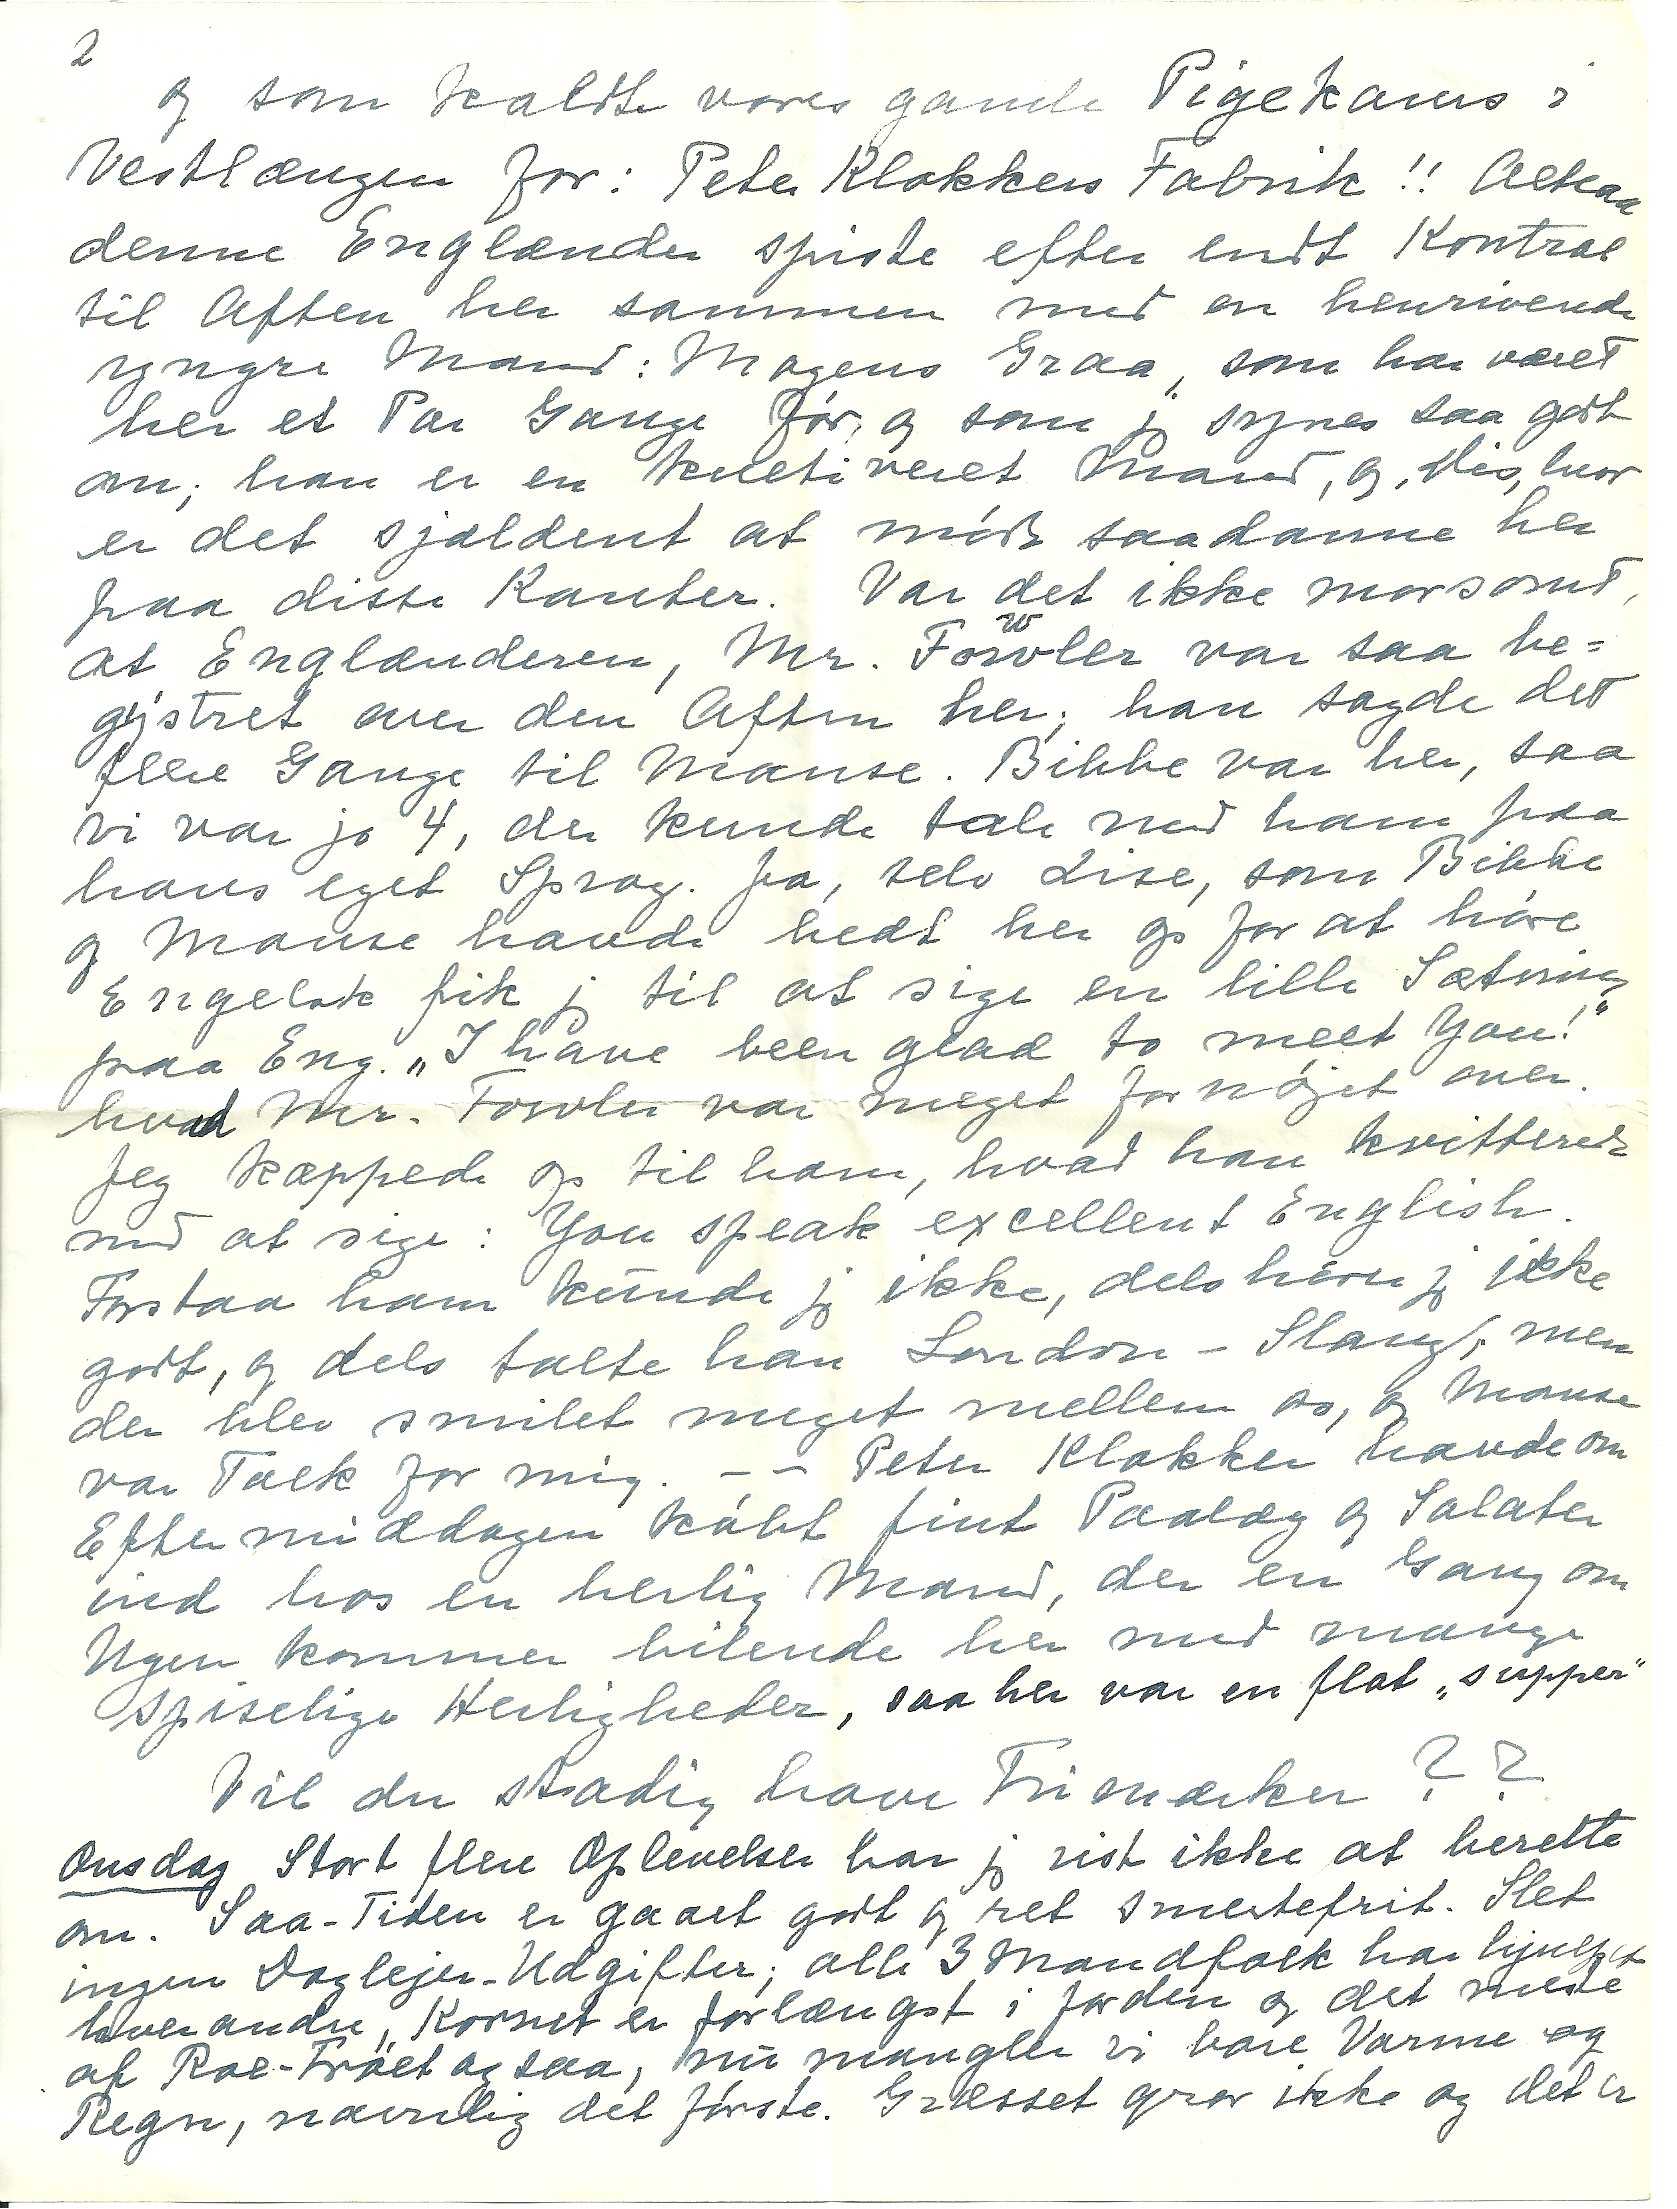 2
og som kaldte vores gamle Pigekams i
Vestlængen for: Peter Klokkers Fabrik!! Altsaa
denne Englænder spiste efter endt Kontrol
til Aften her sammen med en henrivende
yngre Mand: Mogens Graa, som har været
her et Par Gange før, og som jeg synes saa godt
om; han er en kultiveret Mand, og, Dis, hvor
er det sjældent at møde saadanne her
paa disse Kanter. Var det ikke morsomt,
at Englænderen, Mr. Fowler var saa be=
gejstret over den Aften her; han sagde det
flere Gange til Manse. Bibbe var her, saa
vi var jo 4, der kunde tale med ham paa
hans eget Sprog. Ja, selv Lise, som Bibbe
og Manse havde bedt her op for at høre
Engelsk fik jeg til at sige en lille Sætning
paa Eng. „I have been glad to meet You!"
hvad Mr. Fowler var meget fornøjet over.
Jeg kæppede op til ham, hvad han kvitterede
med at sige: You speak excellent English.
Forstaa ham kunde jeg ikke, dels hører jeg ikke
godt, og dels talte han London-Slang; men
der blev smilet meget mellem os, og Manse
var Tolk for mig. – – Peter Klokker havde om
Eftermiddagen købt fint Paalæg og Salater
ind hos en herlig Mand, der en Gang om
Ugen kommer bilende her med mange
spiselige Herligheder, saa her var en flot „supper"
Vil du stadig have Frimærker??
Onsdag Stort flere Oplevelser har jeg vist ikke at berette
om. Saa-Tiden er gaaet godt og ret smertefrit. Slet
ingen Daglejer-Udgifter; alle 3 Mandfolk har hjulpet
hverandre, Kornet er forlængst i Jorden og det meste
af Roe-Frøet ogsaa, nu mangler vi bare Varme og
Regn, navnlig det første. Græsset gror ikke og det er